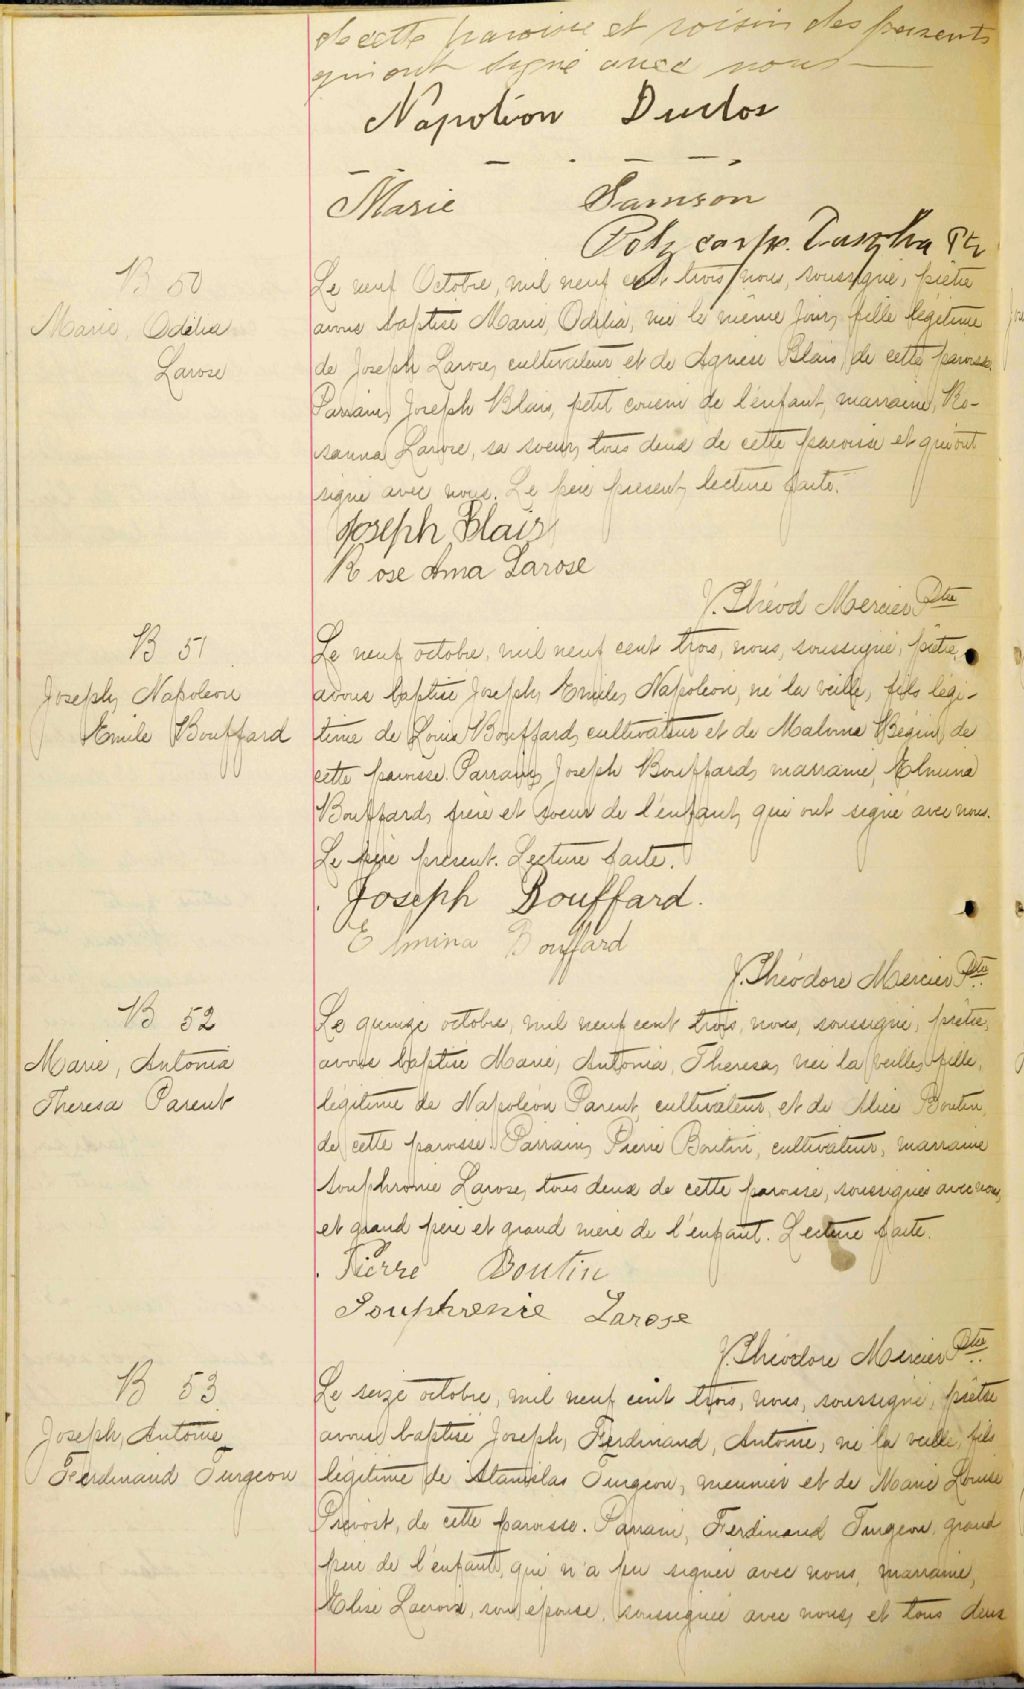 de cette paroisse et voisin des parents
qui ont signé avec nous
Napoléon Duclos
Marie Samson
Polycarpe Ptr
B 50
Marie, Odélia
Larose
Le neuf Octobre, mil neuf cent trois, nous, soussigné, prêtre
avons baptisé Marie, Odélia, née le même jour, fille légitime
de Joseph Larose, cultivateur et de Agnese Blais, de cette paroisse.
Parrain, Joseph Blais, petit cousin de l'enfant, marraine, Ro-
sanna Larose, sa soeur, tous deux de cette paroisse et qui ont
signé avec nous. Le père présent, lecture faite.
Joseph Blais
Rose Ama Larose
J. Théod Mercier Ptre
B 51
Joseph, Napoléon
Emile Bouffard
Le neuf octobre, mil neuf cent trois, nous, soussigné, prêtre,
avons baptisé Joseph, Emile, Napoléon, né la veille, fils légi-
time de Louis Bouffard, cultivateur et de Malvina Bégin, de
cette paroisse. Parrain, Joseph Bouffard, marraine, Elmina
Bouffard, frère et soeur de l'enfant, qui ont signé avec nous.
Le père présent. Lecture faite.
Joseph Bouffard.
Elmina Bouffard
J. Théodore Mercier Ptre
B 52
Marie, Antonia
Theresa Parent
Le quinze octobre, mil neuf cent trois, nous, soussigné, prêtre,
avons baptisé Marie, Antonia, Theresa, née la veille, fille,
légitime de Napoléon Parent, cultivateur, et de Alice Boutin,
de cette paroisse. Parrain, Pierre Boutin, cultivateur, marraine
Souphronie Larose, tous deux de cette paroisse, soussignés avec nous,
et grand père et grand mère de l'enfant. Lecture faite.
Pierre Boutin
Souphrenie Larose
J. Théodore Mercier Ptre
B 53
Joseph, Antoine
Ferdinand Turgeon
Le seize octobre, mil neuf cent trois, nous, soussigné, prêtre
avons baptisé Joseph, Ferdinand, Antoine, né la veille, fils
légitime de Stanislas Turgeon, meunier et de Marie Louise
Prévost, de cette paroisse. Parrain, Ferdinand Turgeon, grand
père de l'enfant, qui n'a pu signer avec nous, marraine,
Elise Lacroix, son épouse, soussignée avec nous, et tous deux